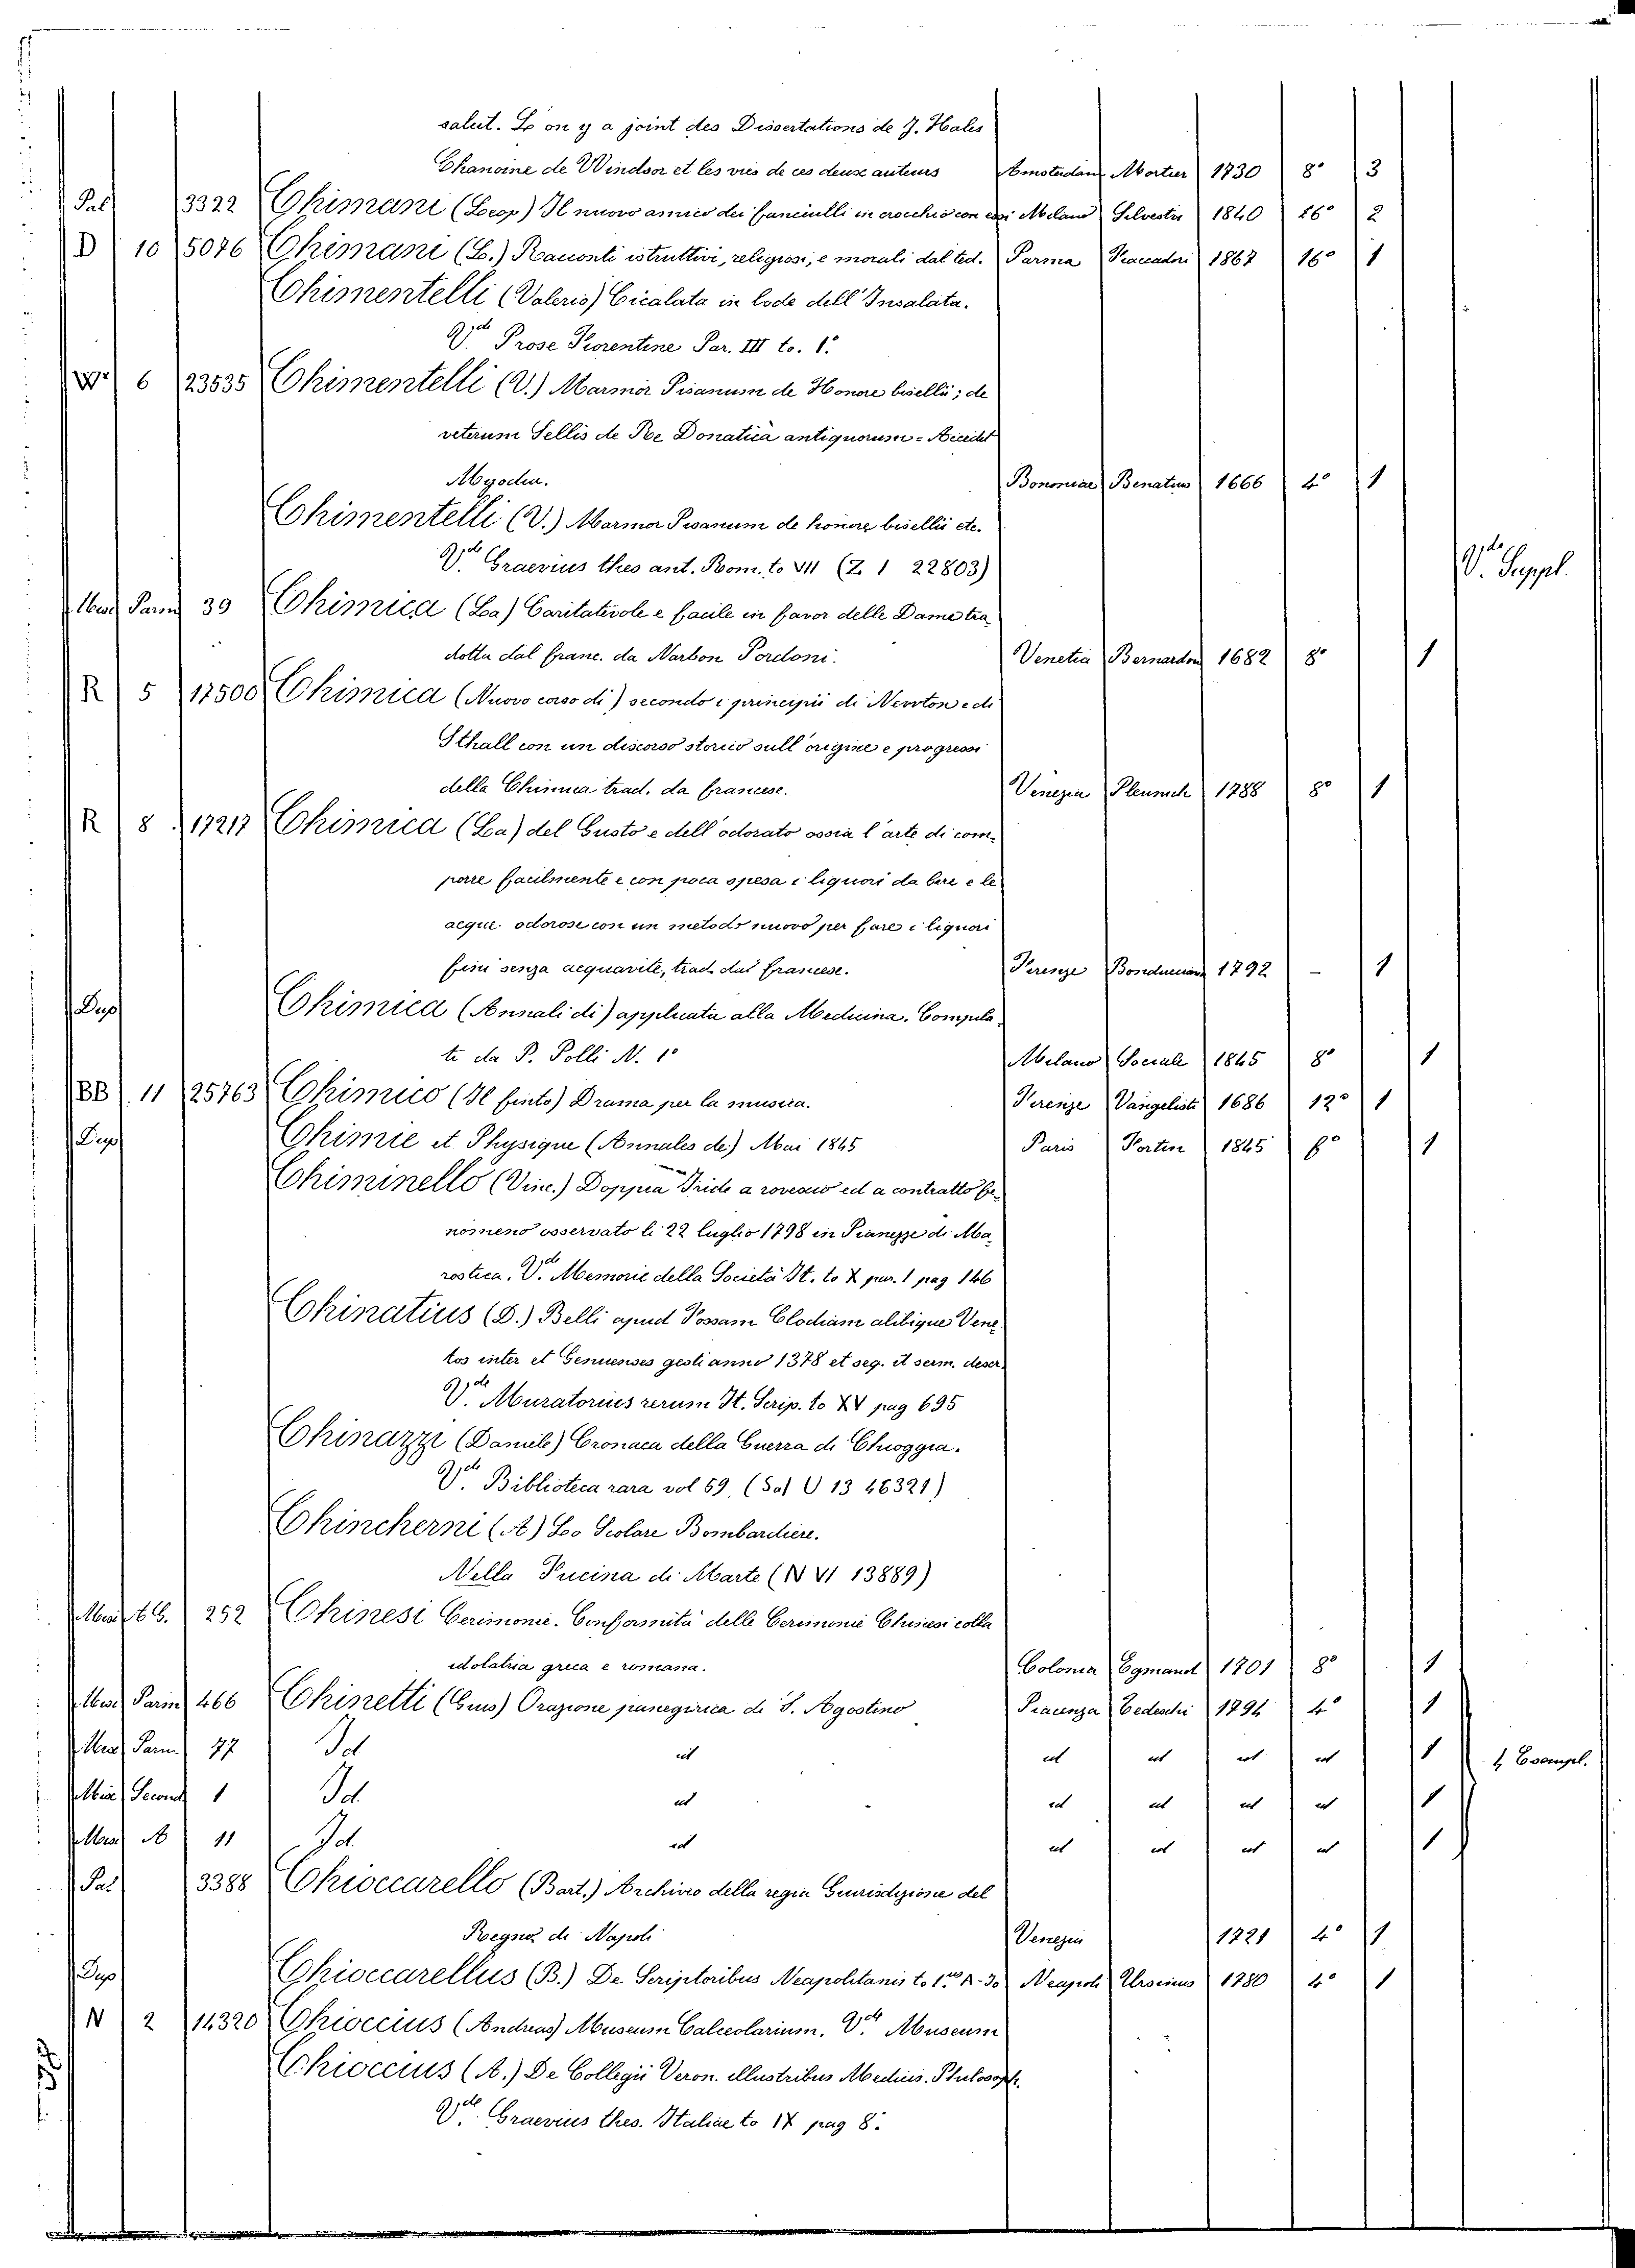 salut. L on y a joint des Dissertations de J. Hales
Chanoine de Windsor et les vies de ces deux auteurs Amsterdam Mortier 1730 8° 3
Pal 3322 Chimani (Leop) Il nuovo amico dei fanciulli in crocchio con essi Milano Silvestri 1840 16° 2
D 10 5076 Chimani (L.) Racconti istruttivi, religiosi, e morali dal ted. Parma Fiaccadori 1867 16° 1
Chimentelli (Valerio) Cicalata in lode dell' Insalata.
V.de Prose Fiorentine Par. III to. 1°.
W 6 23535 Chimentelli (V.) Marmor Pisanum de Honore bisellii; de
veterum Sellis de Re Donatica antiquorum - Accedit
Myodia. Bononiae Benatius 1666 4° 1
Chimentelli (V.) Marmor Pisanum de honore bisellii etc.
V.de Graevius thes ant. Rom. to VII (Z 1 22803)
V.de Suppl.
Misc Parm 39 Chimica (La) Caritatevole e facile in favor delle Dame tra
dotta dal franc. da Narbon Pordoni. Venetia Bernardon 1682 8° 1
R 5 17500 Chimica (Nuovo corso di) secondo i principii di Newton e di
Sthall con un discorso storico sull' origine e progressi
della Chimica trad. da francese. Venezia 1788 8° 1
R 8 17217 Chimica (La) del Gusto e dell' odorato ossia l' arte di com-
porre facilmente e con poca spesa i liquori da bere e le
acque odorose con un metodo nuovo per fare i liquori
fini senza acquavite, trad. dal francese. Firenze 1792 - 1
Dup Chimica (Annali di) applicata alla Medicina. Compila
ti da P. Polli N. 1° Milano Sociale 1845 8° 1
BB 11 25763 Chimico (Il finto) Drama per la musica. Firenze Vangelisti 1686 12° 1
Dup Chimie et Physique (Annales de) Mai 1845 Paris Fortin 1845 8° 1
Chiminello (Vinc.) Doppia Iride a rovescio ed a contratto fe-
nomeno osservato li 22 luglio 1798 in Pianezze di Ma
rostica. V.de Memorie della Società It. to X par. 1 pag 146
Chinatius (D.) Belli apud Fossam Clodiam alibique Vene
tos inter et Genuenses gesti anno 1378 et seq. it serm. descr.
V.de Muratorius rerum It. Scrip. to XV pag 695
Chinazzi (Daniele) Cronaca della Guerra di Chioggia.
V.de Biblioteca rara vol 59. (Sal U 13 46321)
Chincherni (A) Lo Scolare Bombardiere.
Nella Fucina di Marte (N VI 13889)
252 Chinesi Cerimonie. Conformità delle Cerimonie Chinesi colla
idolatria greca e romana. Colonia Egmand 1701 8° 1
Misc Parm 466 Chinetti (Guis) Orazione panegirica di S. Agostino Piacenza Tedeschi 1794 4° 1
Misc Parm. 77 Id id id id id id 1 4 Esempl.
Misc Second 1 Id. id id id id id 1
Misc A 11 Id. id id id id id 1
Pal 3388 Chioccarello (Bart.) Archivio della regia Giurisdizione del
Regno di Napoli Venezia 1721 4° 1
Dup Chioccarellus (B.) De Scriptoribus Neapolitanis to 1us A-Jo Neapoli Ursinus 1780 4° 1
N 2 14320 Chioccius (Andreas) Museum Calceolarium. V.de Museum
Chioccius (A.) De Collegii Veron. illustribus Medicis. Philosoph.
V.de Graevius thes. Italiae to IX pag 8°.